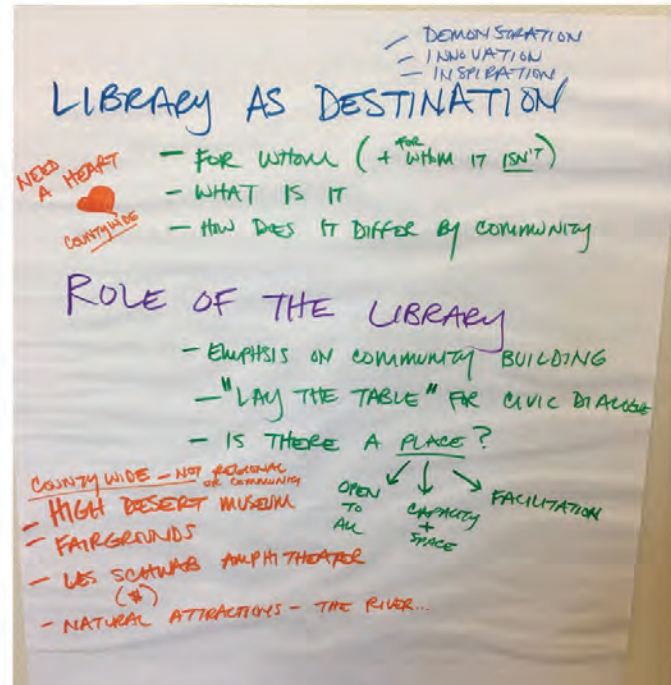 — DEMONSTRATION
— INNOVATION
— INSPIRATION
LIBRARY AS DESTINATION
NEED
A HEART
COUNTYWIDE
— FOR WHOM (+ FOR WHOM IT ISN'T)
— WHAT IS IT
— HOW DOES IT DIFFER BY COMMUNITY
ROLE OF THE LIBRARY
— EMPHSIS ON COMMUNITY BUILDING
— "LAY THE TABLE" FOR CIVIC DIALOGE
— IS THERE A PLACE?
OPEN
TO
ALL
CAPACITY
+
SPACE
FACILITATION
COUNTYWIDE — NOT REGIONAL
OR COMMUNITY
— HIGH DESERT MUSEUM
— FAIRGROUNDS
— LES SCHWAB AMPHITHEATER
($)
— NATURAL ATTRACTIONS — THE RIVER...